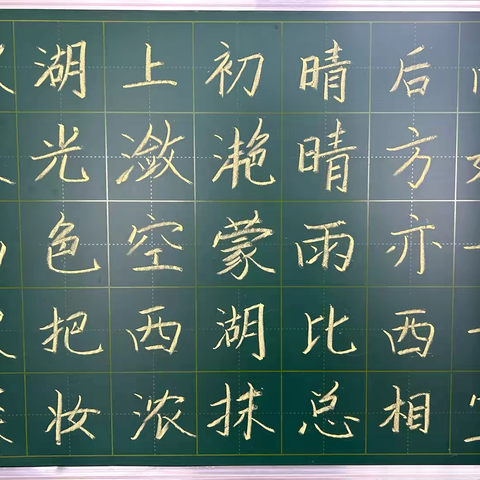 湖上初晴后
光潋滟晴方
色空蒙雨亦
把西湖比西
妆浓抹总相